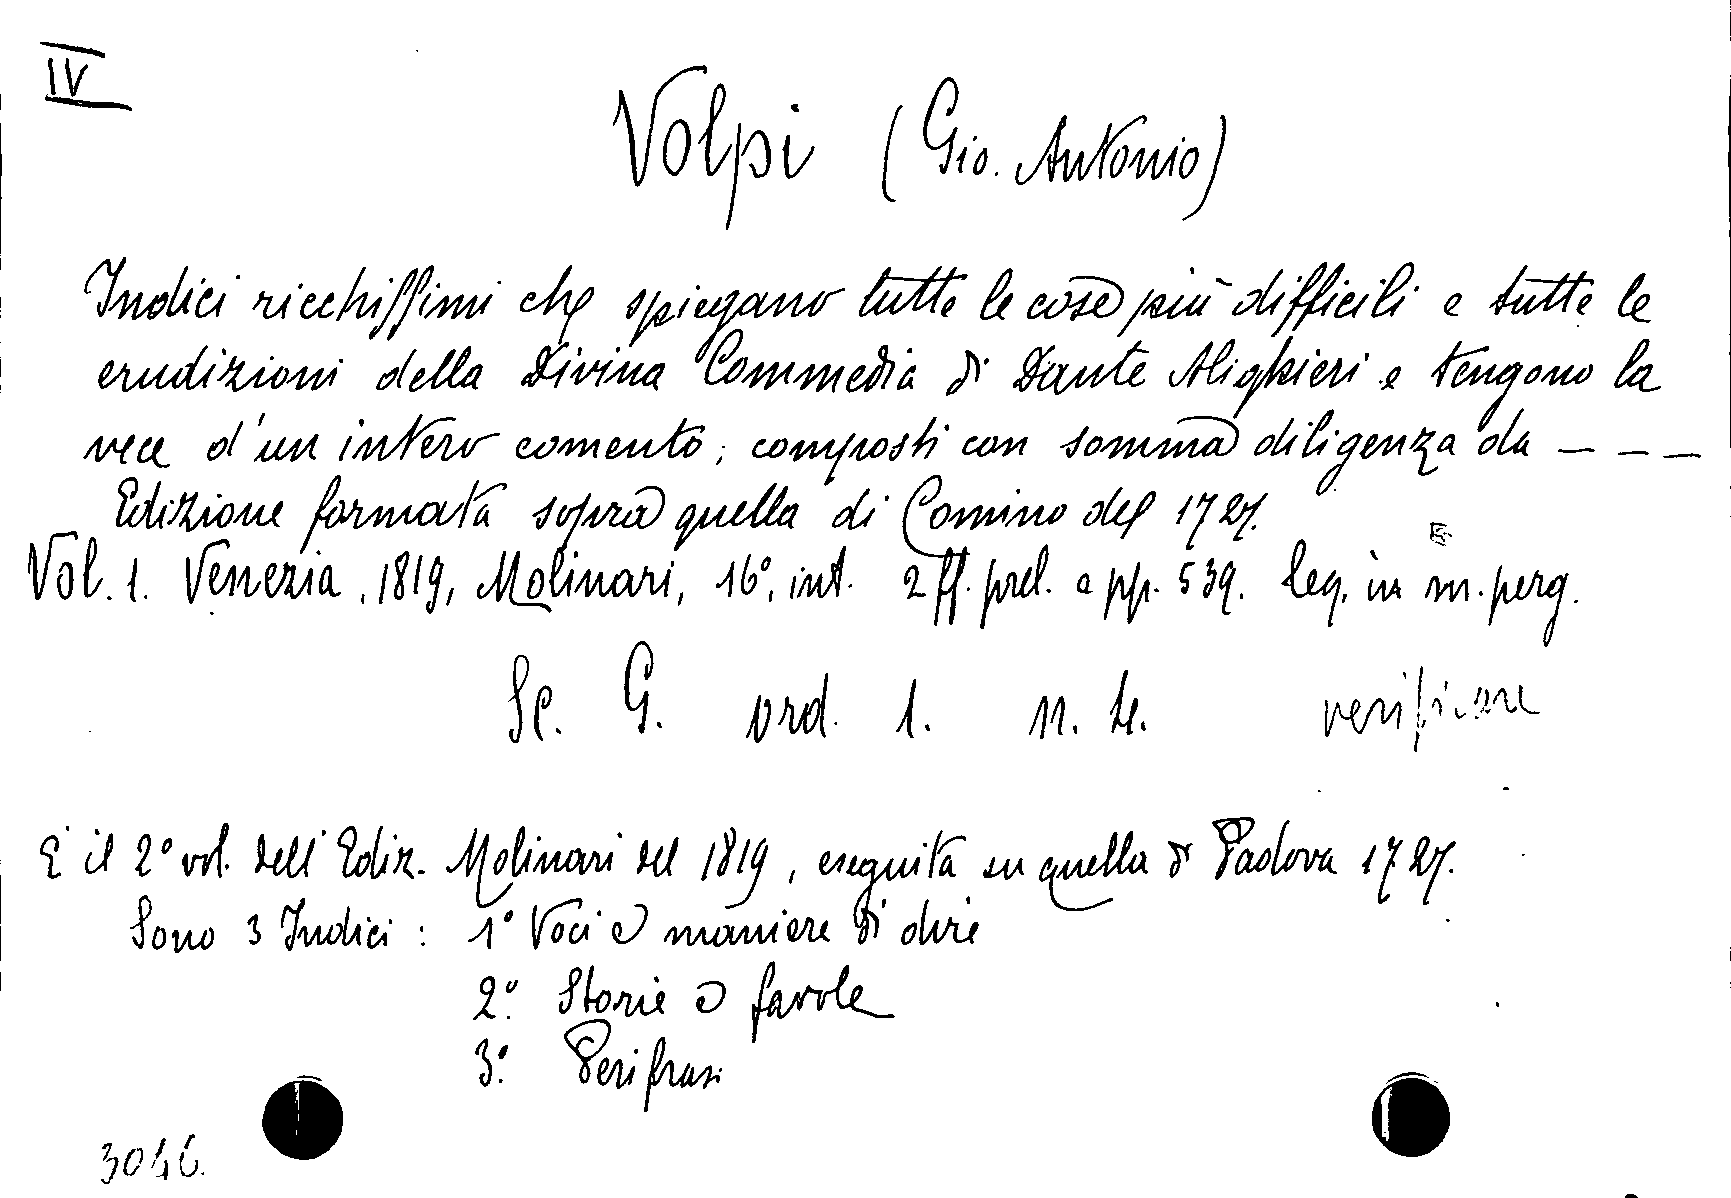 IV
Volpi (Gio. Antonio)
Indici ricchissimi che spiegano tutte le cose più difficili e tutte le
erudizioni della Divina Commedia di Dante Alighieri e tengono la
vece d'un intero comento; composti con somma diligenza da — — —
Edizione formata sopra quella di Comino del 1727.
Vol. 1. Venezia, 1819, Molinari, 16°, int. 2 ff. prel. e pp. 539. leg. in m. perg.
Sc. G. ord. 1. n. 4. verificare
E' il 2° vol. dell'Ediz. Molinari del 1819, eseguita su quella di Padova 1727.
Sono 3 Indici: 1° Voci e maniere di dire
2° Storie e favole
3° Perifrasi